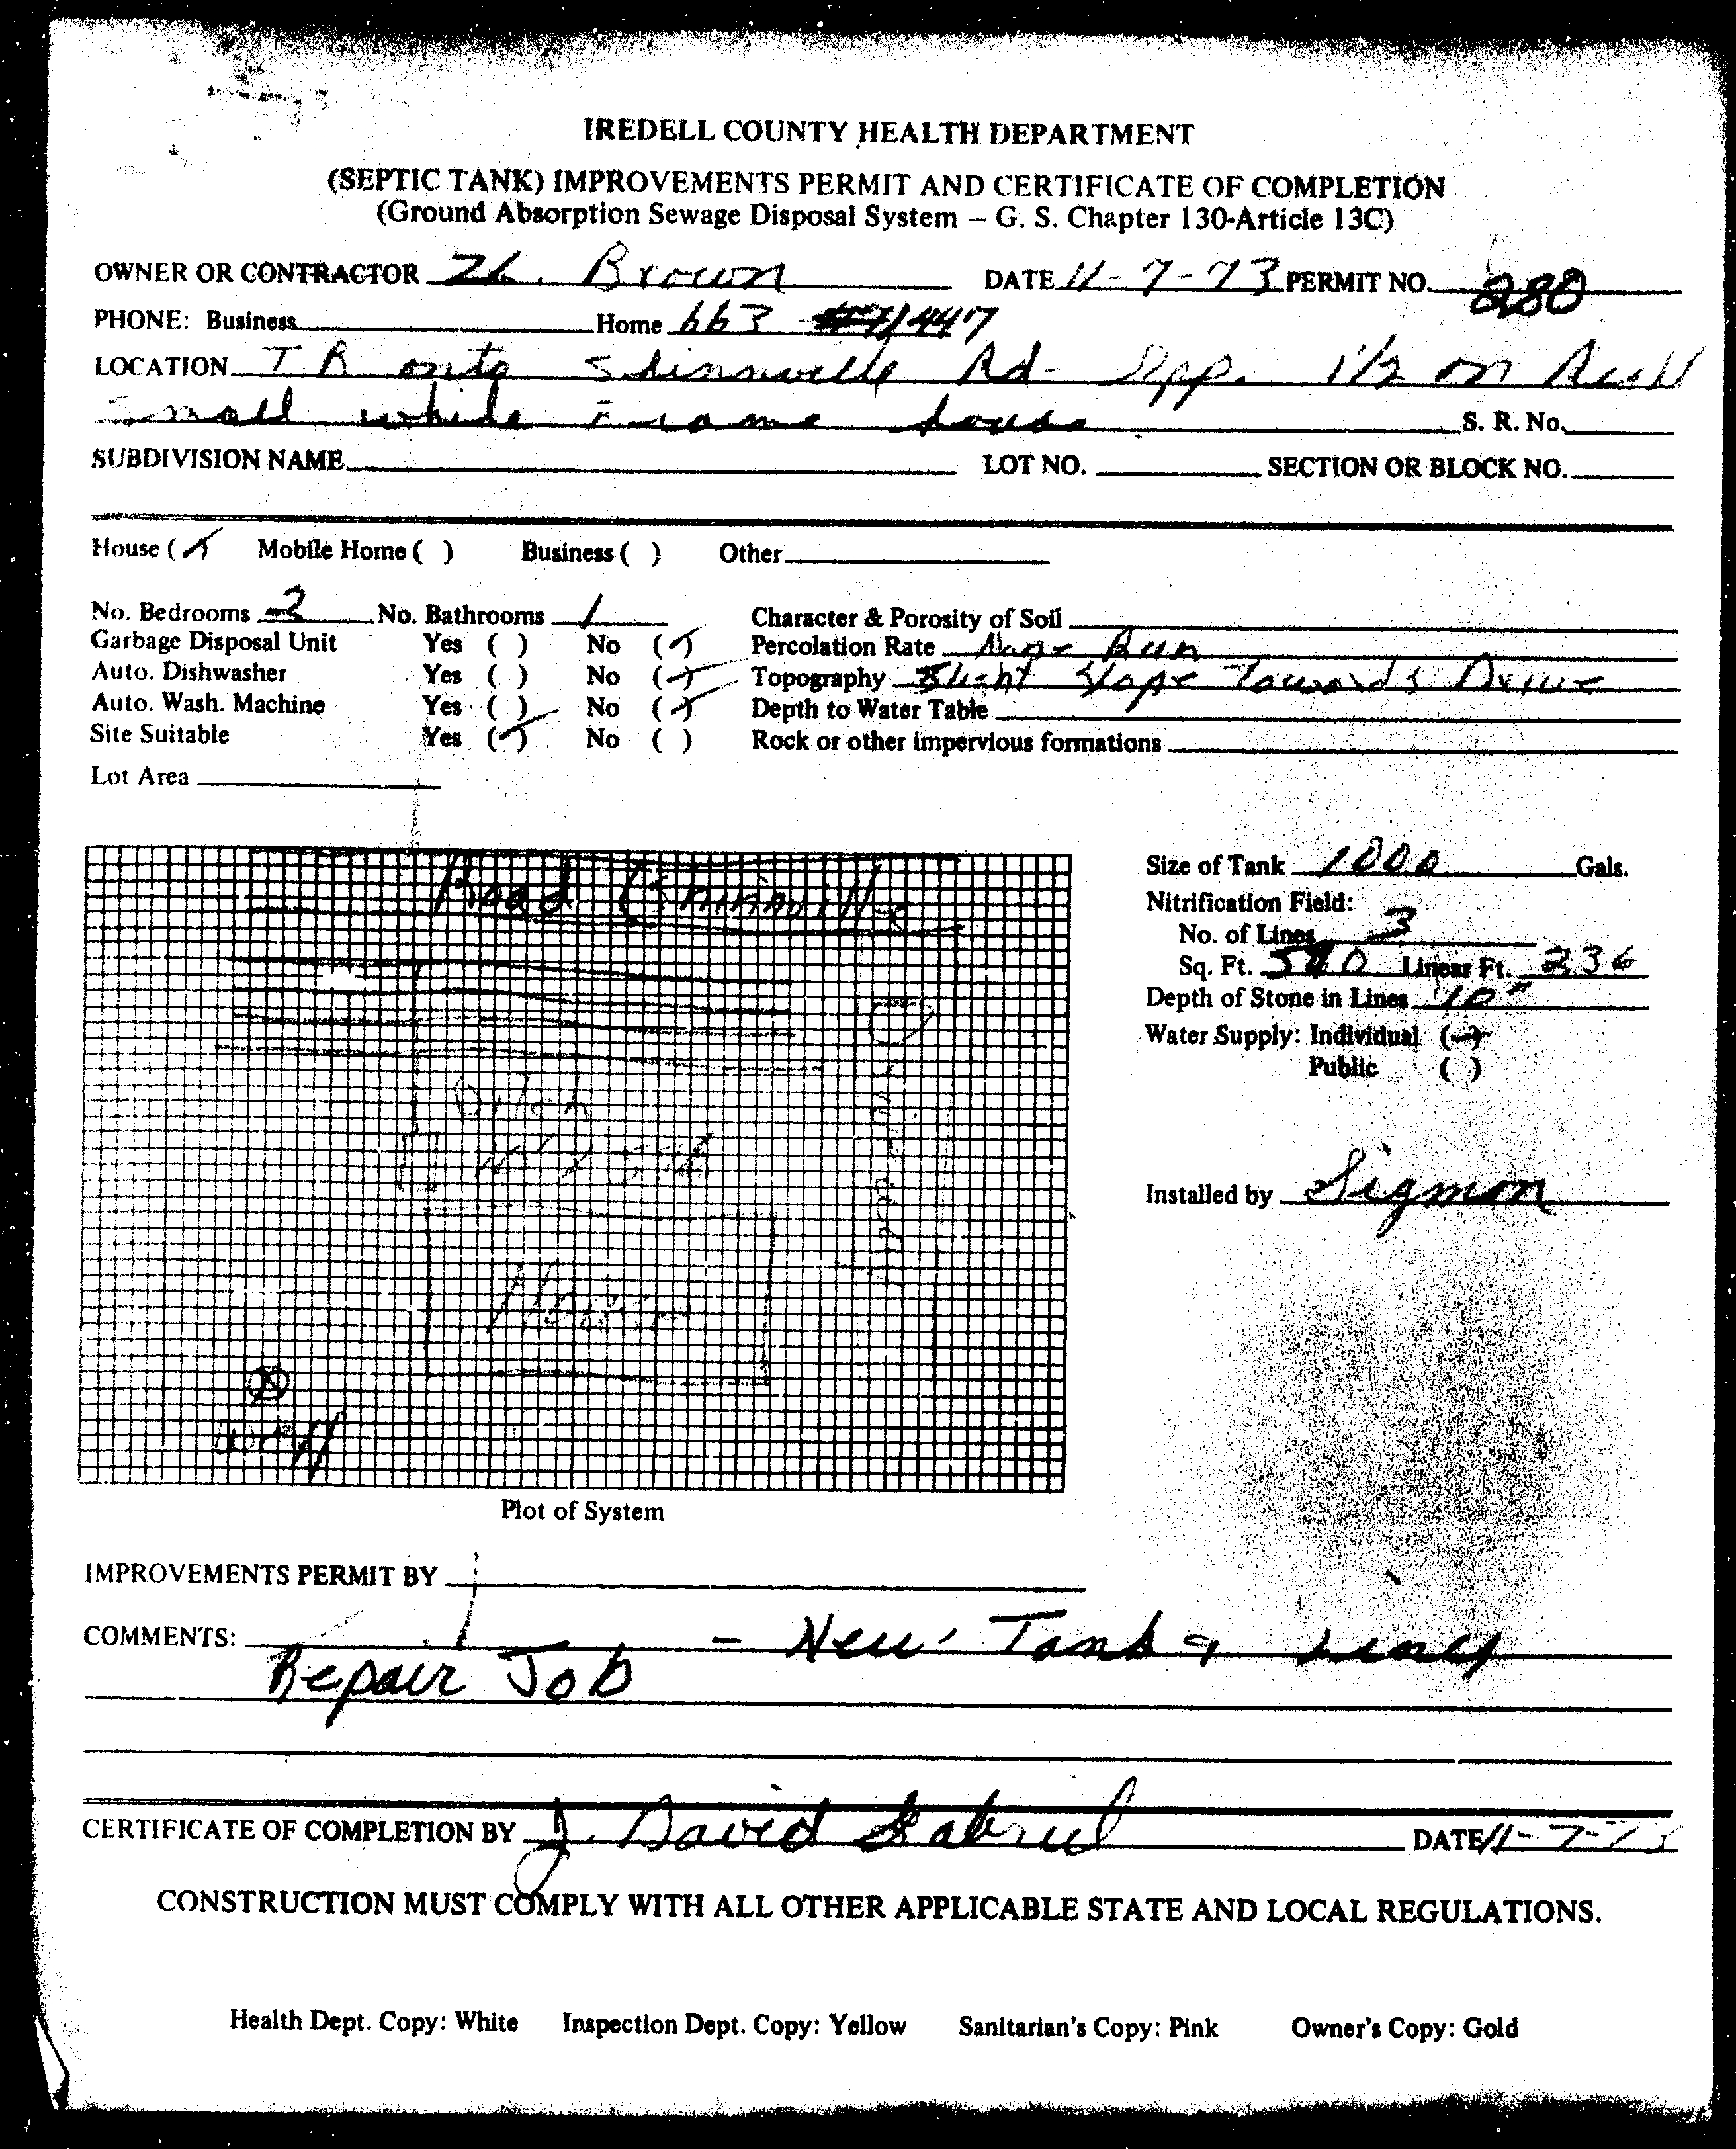 IREDELL COUNTY HEALTH DEPARTMENT
(SEPTIC TANK) IMPROVEMENTS PERMIT AND CERTIFICATE OF COMPLETION
(Ground Absorption Sewage Disposal System – G. S. Chapter 130-Article 13C)
OWNER OR CONTRACTOR Z.L. Brown DATE 11-7-73 PERMIT NO. 280
PHONE: Business Home 663
LOCATION T R onto Shinnville Rd- App. 1½ on
Small white Frame house S. R. No.
SUBDIVISION NAME LOT NO. SECTION OR BLOCK NO.
House (✓) Mobile Home ( ) Business ( ) Other
No. Bedrooms 2 No. Bathrooms 1 Character & Porosity of Soil
Garbage Disposal Unit Yes ( ) No (✓) Percolation Rate None Run
Auto. Dishwasher Yes ( ) No (✓) Topography Slight Slope Towards Drive
Auto. Wash. Machine Yes ( ) No (✓) Depth to Water Table
Site Suitable Yes (✓) No ( ) Rock or other impervious formations
Lot Area
Road (Shinnville
Size of Tank 1000 Gals.
Nitrification Field:
No. of Lines 3
Sq. Ft. Linear Ft. 236
Depth of Stone in Lines 10"
Water Supply: Individual (✓)
Public ( )
Ditch
House
Well
Installed by Sigmon
Plot of System
IMPROVEMENTS PERMIT BY
COMMENTS: - New Tank & Lines
Repair Job
CERTIFICATE OF COMPLETION BY J. David Gabriel DATE 11-7-73
CONSTRUCTION MUST COMPLY WITH ALL OTHER APPLICABLE STATE AND LOCAL REGULATIONS.
Health Dept. Copy: White Inspection Dept. Copy: Yellow Sanitarian's Copy: Pink Owner's Copy: Gold